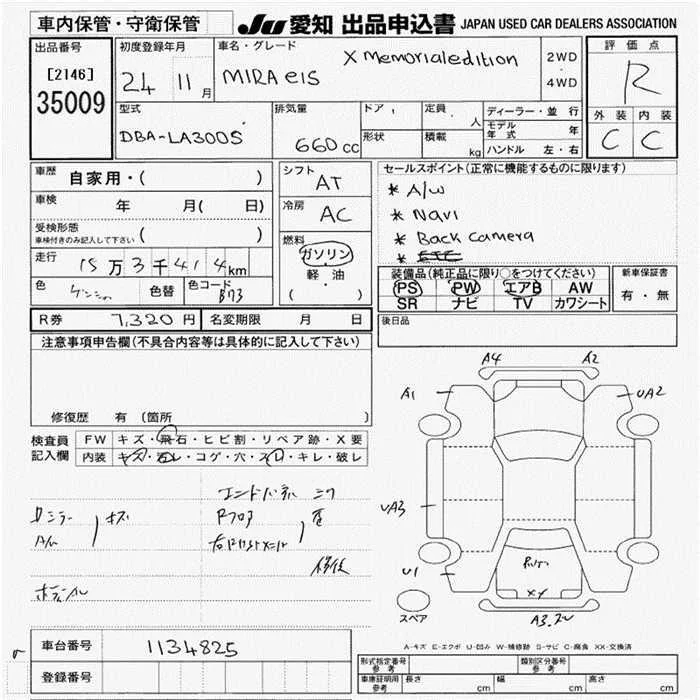 車内保管・守衛保管
JU 愛知 出品申込書 JAPAN USED CAR DEALERS ASSOCIATION
出品番号
[2146]
35009
初度登録年月
24 11月
車名・グレード
X Memorialedition
MIRA eis
2WD
・
4WD
評価点
R
外装 内装
C C
型式
DBA-LA300S
排気量
660 cc
ドア
形状
定員 人
積載 kg
ディーラー・並行
モデル年式 年
ハンドル 左・右
車歴
自家用・( )
車検 年 月( 日)
受検形態
車検付きのみ記入して下さい ( )
走行 15万3千414km
色 色替 色コード B73
シフト
AT
冷房
AC
燃料
ガソリン
・
軽・油
( )
セールスポイント(正常に機能するものに限ります)
* A/W
* Navi
* Back camera
* ETC
装備品(純正品に限り○をつけてください)
PS PW エアB AW
SR ナビ TV カワシート
新車保証書
有・無
R券 7,320円 名変期限 月 日
後日品
注意事項申告欄(不具合内容等は具体的に記入して下さい)
修復歴 有 (箇所 )
検査員
記入欄
FW キズ・飛石・ヒビ割・リペア跡・X要
内装 キズ・汚レ・コゲ・穴・スレ・キレ・破レ
キズ
修復
A4 A2
A1 UA2
UA3
U1
XX
スペア
A-キズ E-エクボ U-凹み W-補修跡 S-サビ C-腐食 XX-交換済
車台番号 1134825
登録番号
形式指定番号
参考
類別区分番号
参考
車庫証明用
参考
長さ cm 幅 cm 高さ cm